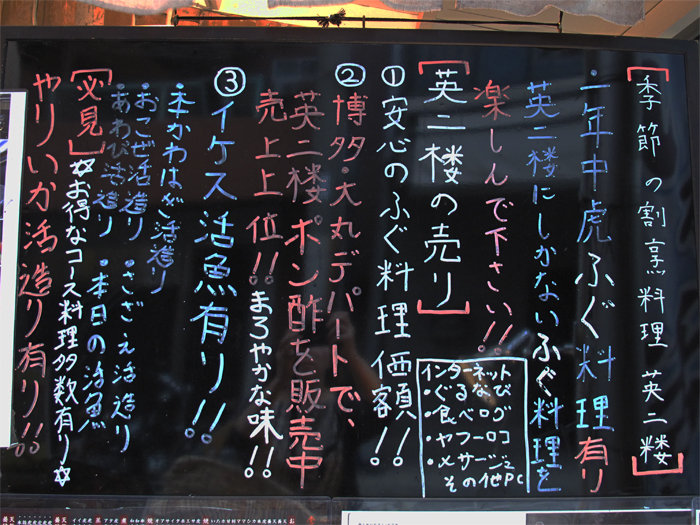 ［季節の割烹料理 英二楼］
・一年中虎ふぐ料理有り
英二楼にしかないふぐ料理を
楽しんで下さい!!
［英二楼の売り］
①安心のふぐ料理価額!!
②博多・大丸デパートで、
英二楼ポン酢を販売中
売上上位!!まろやかな味!!
③イケス活魚有り!!
・本かわはぎ活造り
・おこぜ活造り・さざえ活造り
・あわび活造り・本日の活魚
［必見］☆お得なコース料理多数有り☆
やりいか活造り有り!!
インターネット
・ぐるなび
・食べログ
・ヤフーロコ
・メッセージ
その他PC